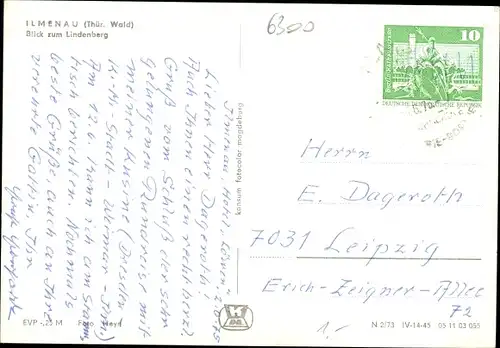 ILMENAU (Thür. Wald)
Blick zum Lindenberg
6300
10
DEUTSCHE DEMOKRATISCHE REPUBLIK
Ilmenau, Hotel "Löwen" 2. 6. 75
Lieber Herr Dageroth!
Auch Ihnen einen recht herzl.
Gruß vom Schluß der sehr
gelungenen Rundreise mit
meiner Kusine (Dresden
K.-M.-Stadt - Weimar - Ilmenau)
Am 12.6. kann ich am Stamm-
tisch berichten. Nochmals
beste Grüße auch an Ihre
verehrte Gattin. Ihr
Herrn
E. Dageroth
7031 Leipzig
Erich-Zeigner-Allee
72
1.-
konsum fotocolor magdeburg
EVP -,25 M Foto Heyd
N 2/73 IV-14-45 05 11 03 055